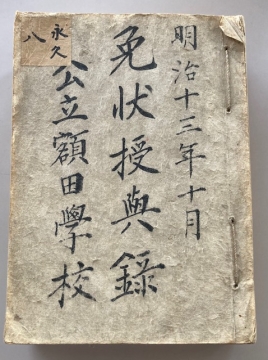 明治十三年十月
免状授與錄
公立額田學校
永久
八